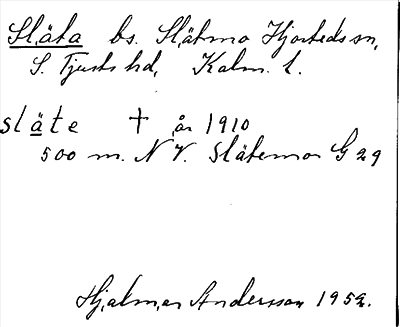 Släta bs. Slätmo Hjorteds sn,
S. Tjusts hd, Kalm. l.
släte † år 1910
500 m. N V. Slätemon G 29
Hjalmar Andersson 1952.